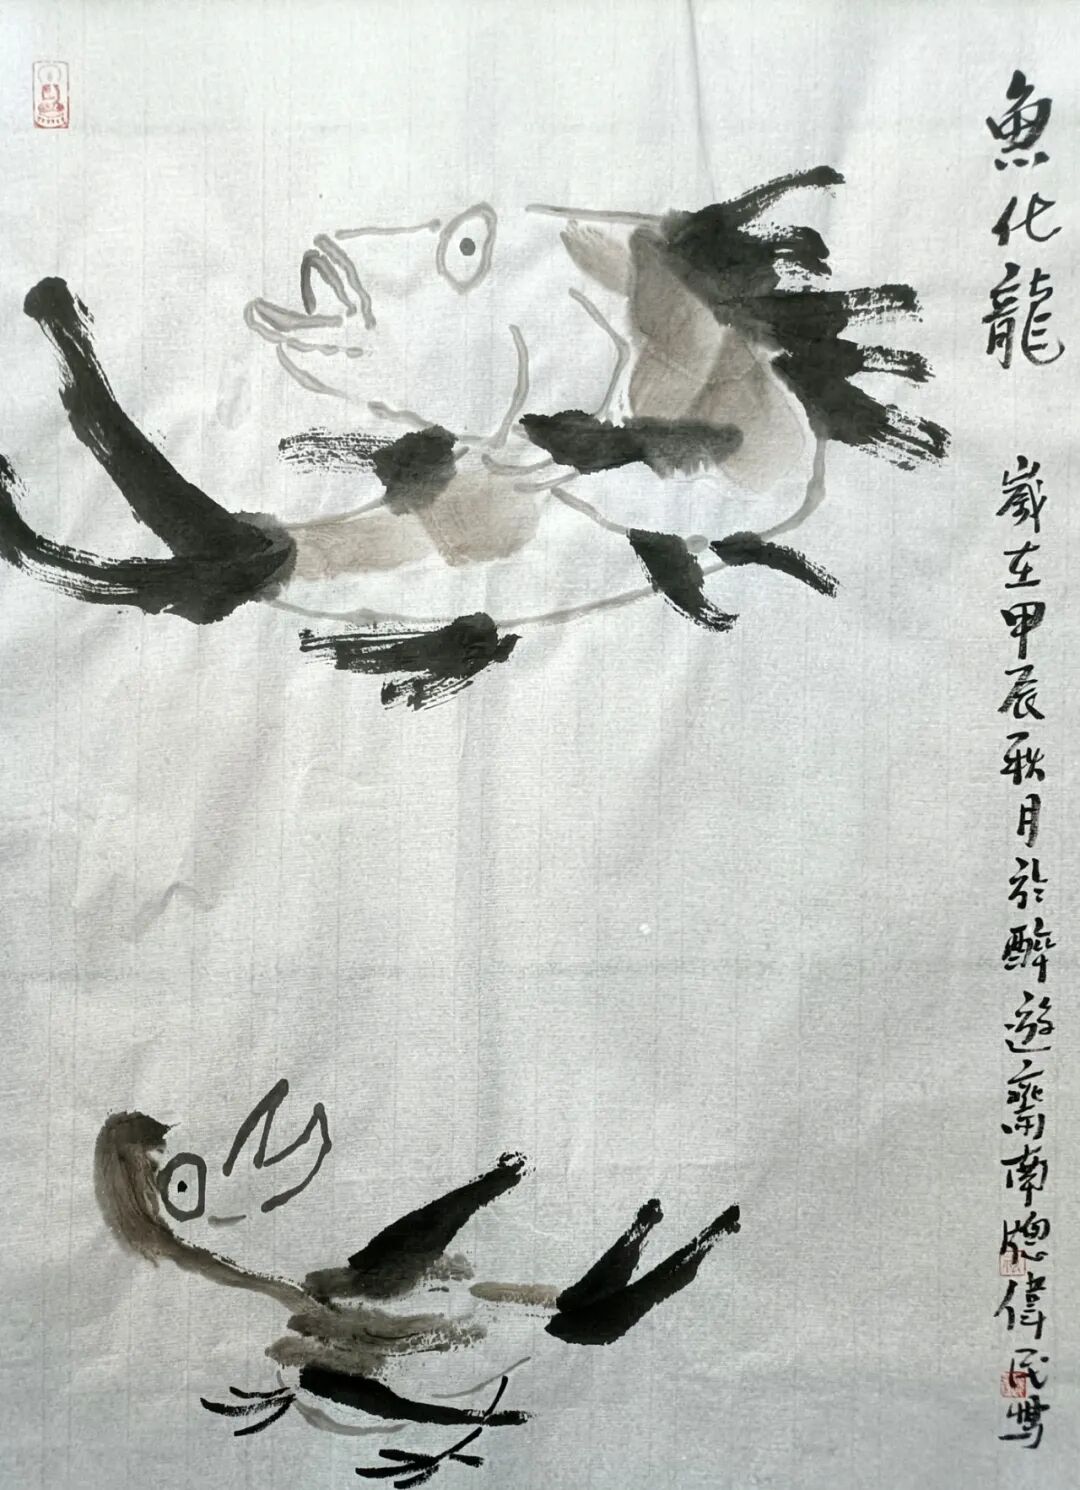 魚化龍
歲在甲辰秋月於醉遊齋南牕偉民寫